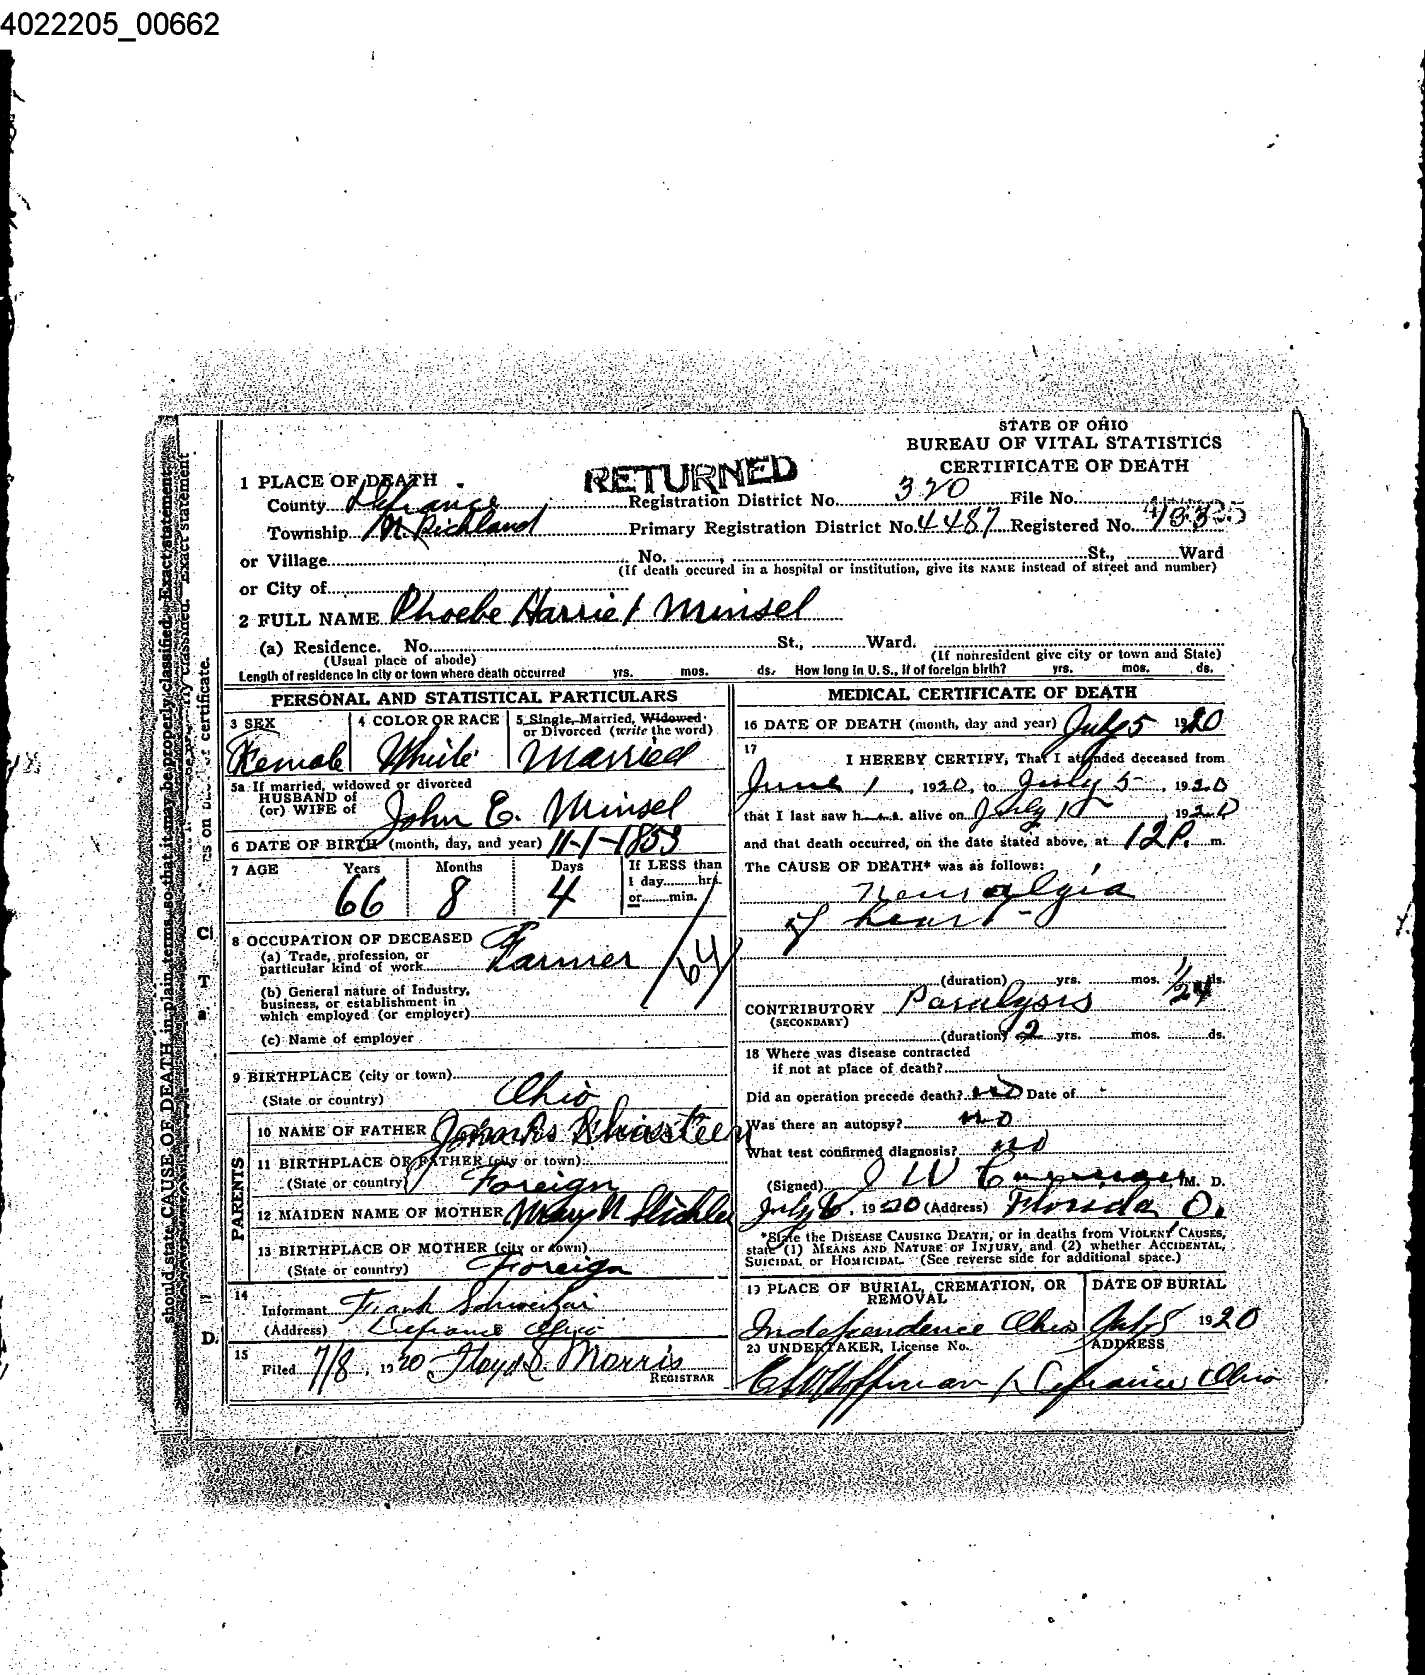 4022205_00662
STATE OF OHIO
BUREAU OF VITAL STATISTICS
CERTIFICATE OF DEATH
RETURNED
1 PLACE OF DEATH
County Defiance Registration District No. 320 File No.
Township N. Richland Primary Registration District No. 4487 Registered No.
or Village No. St., Ward
(If death occured in a hospital or institution, give its NAME instead of street and number)
or City of
2 FULL NAME Phoebe Harriet Minsel
(a) Residence. No. St., Ward.
(Usual place of abode) (If nonresident give city or town and State)
Length of residence in city or town where death occurred yrs. mos. ds. How long in U. S., if of foreign birth? yrs. mos. ds.
PERSONAL AND STATISTICAL PARTICULARS
3 SEX 4 COLOR OR RACE 5 Single, Married, Widowed
or Divorced (write the word)
Female White Married
5a If married, widowed or divorced
HUSBAND of
(or) WIFE of John E. Minsel
6 DATE OF BIRTH (month, day, and year) 11-1-1853
7 AGE Years Months Days If LESS than
1 day hrs.
or min.
66 8 4
8 OCCUPATION OF DECEASED
(a) Trade, profession, or
particular kind of work Farmer
164
(b) General nature of Industry,
business, or establishment in
which employed (or employer)
(c) Name of employer
9 BIRTHPLACE (city or town)
(State or country) Ohio
PARENTS
10 NAME OF FATHER
11 BIRTHPLACE OF FATHER (city or town)
(State or country) Foreign
12 MAIDEN NAME OF MOTHER Mary
13 BIRTHPLACE OF MOTHER (city or town)
(State or country) Foreign
14
Informant Frank
(Address) Defiance Ohio
15
Filed 7/8, 1920 Floyd S. Morris
REGISTRAR
MEDICAL CERTIFICATE OF DEATH
16 DATE OF DEATH (month, day and year) July 5 1920
17
I HEREBY CERTIFY, That I attended deceased from
June 1, 1920, to July 5, 1920
that I last saw h alive on July 1920
and that death occurred, on the date stated above, at 12 P. m.
The CAUSE OF DEATH* was as follows:
Neuralgia
of heart
(duration) yrs. mos. 1/24 ds.
CONTRIBUTORY Paralysis
(SECONDARY)
(duration) 2 yrs. mos. ds.
18 Where was disease contracted
if not at place of death?
Did an operation precede death? no Date of -
Was there an autopsy? no
What test confirmed diagnosis? no
(Signed) J W M. D.
July 6, 1920 (Address) Florida O.
*State the DISEASE CAUSING DEATH, or in deaths from VIOLENT CAUSES,
state (1) MEANS AND NATURE OF INJURY, and (2) whether ACCIDENTAL,
SUICIDAL or HOMICIDAL. (See reverse side for additional space.)
19 PLACE OF BURIAL, CREMATION, OR
REMOVAL
DATE OF BURIAL
Independence Ohio July 8 1920
20 UNDERTAKER, License No.
ADDRESS
Hoffman Defiance Ohio
should state CAUSE OF DEATH in plain terms, so that it may be properly classified. Exact statement
certificate.